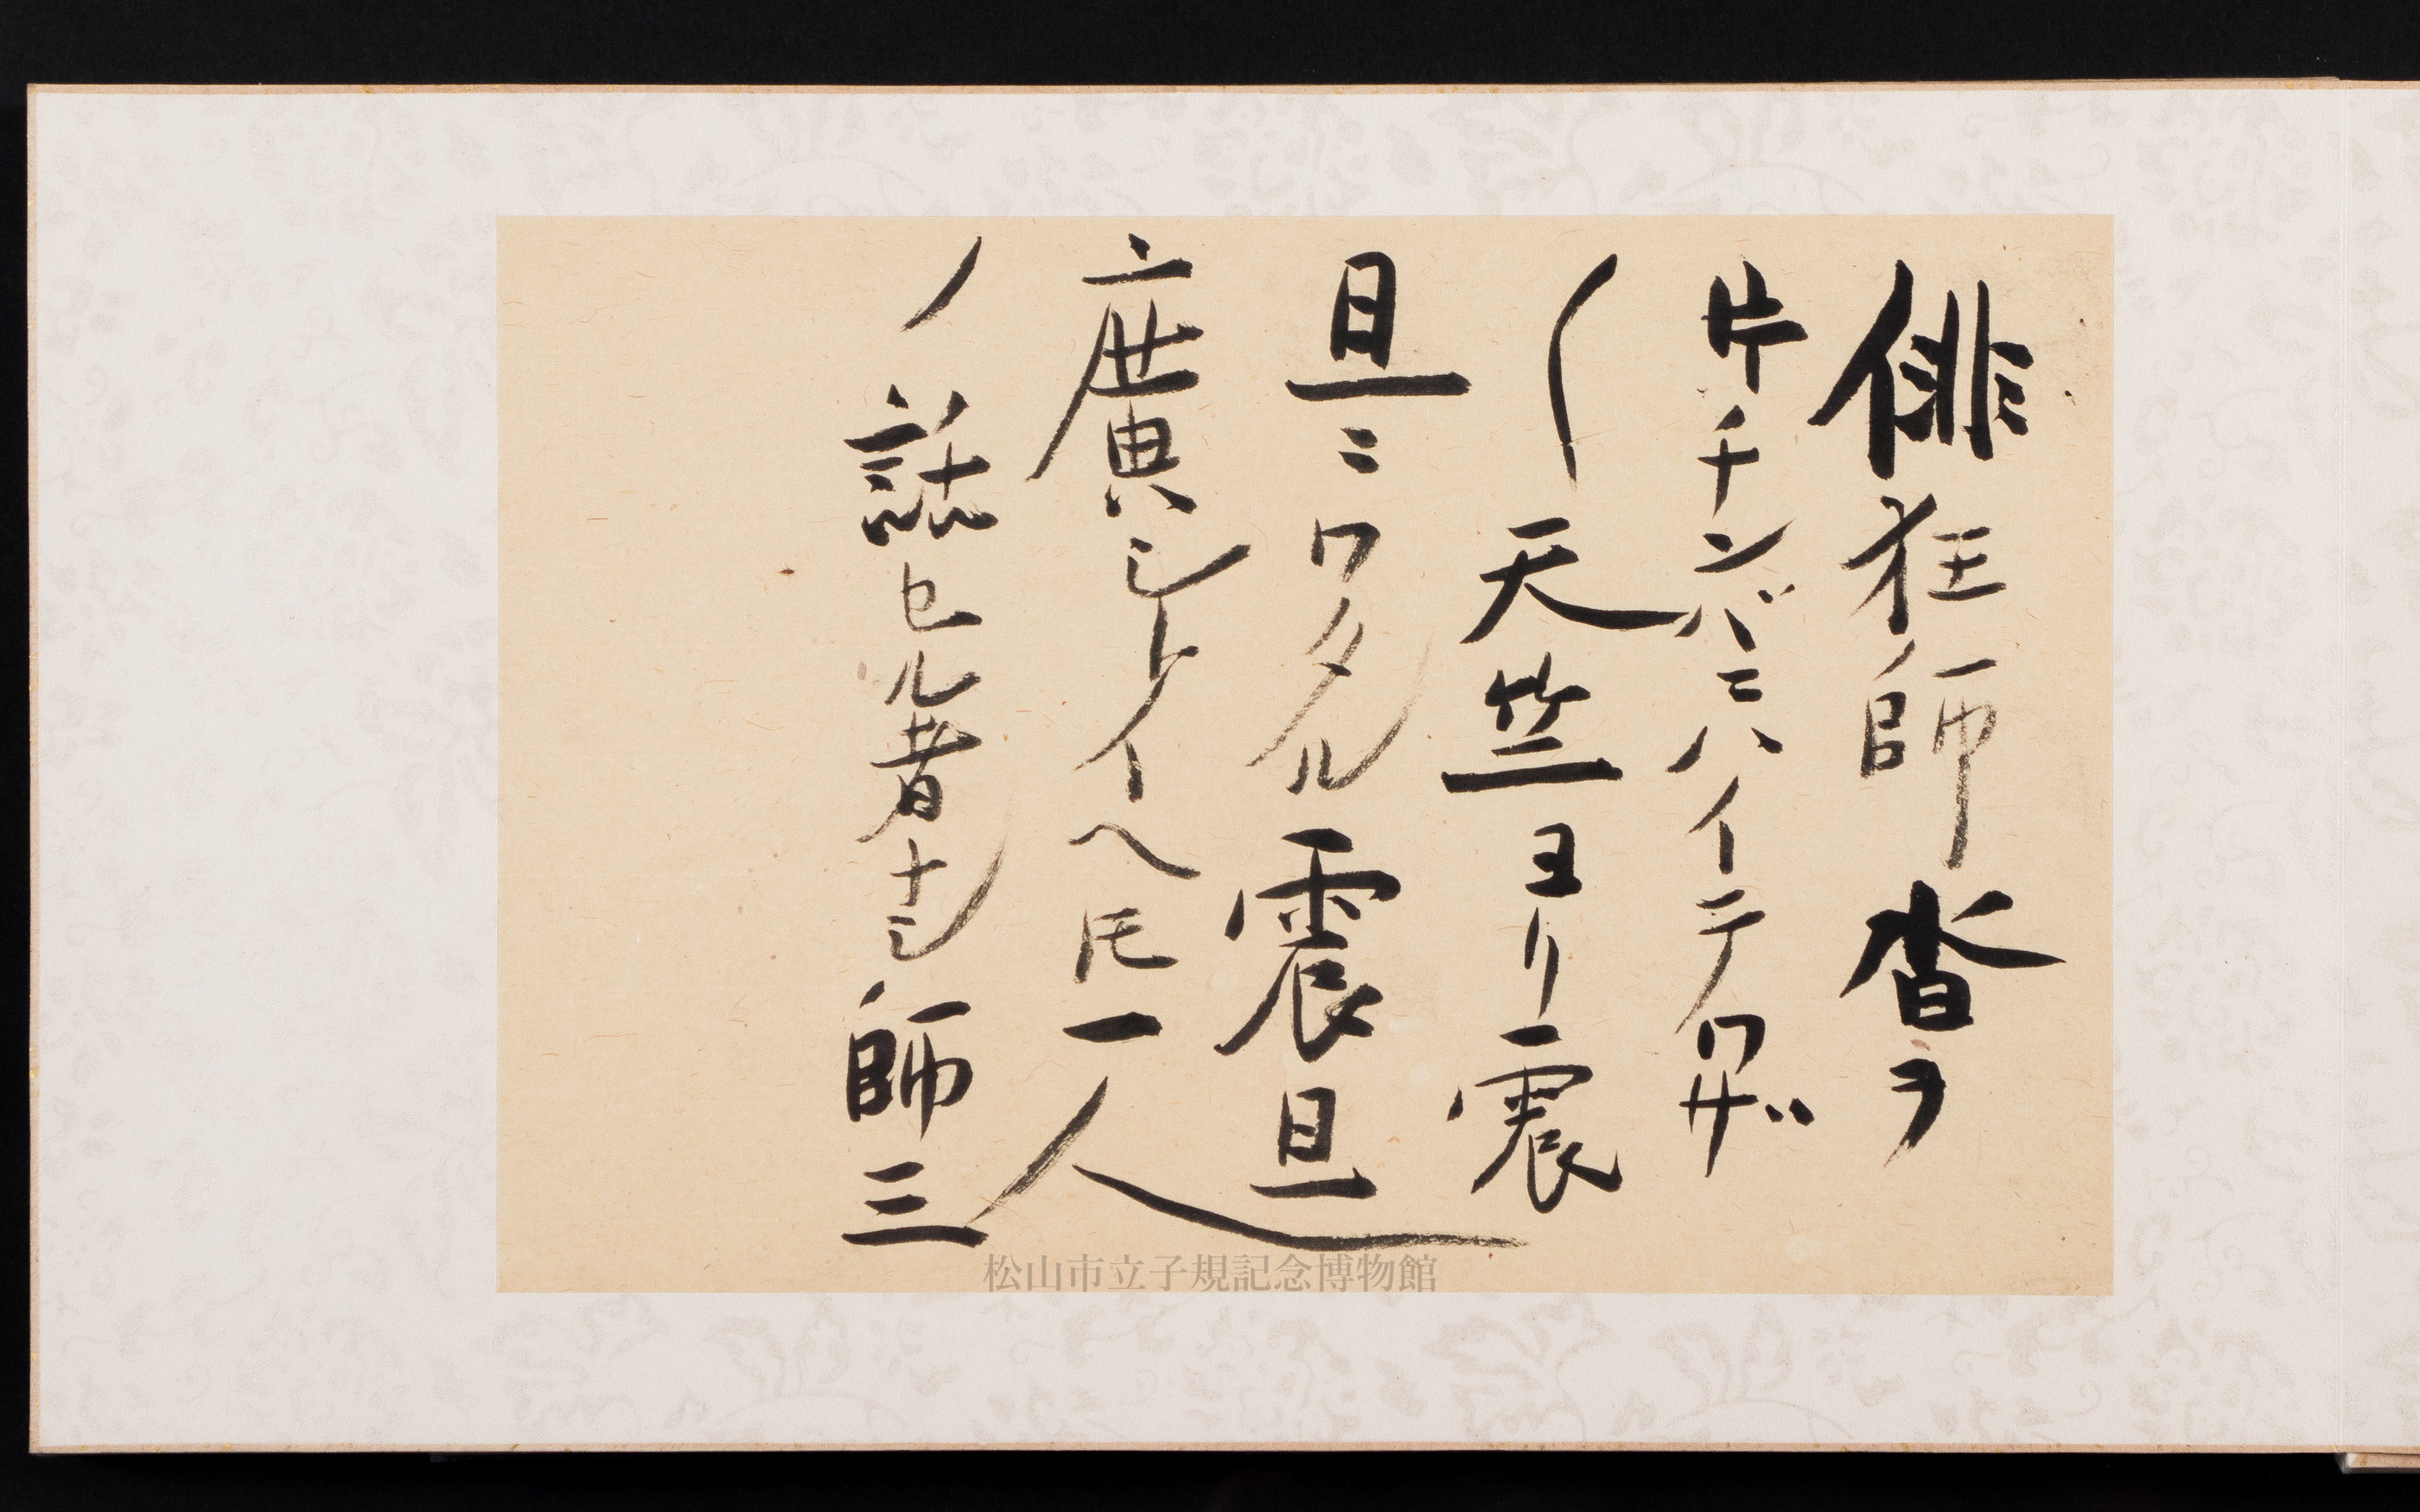 俳狂師沓ヲ
片チンバニハイテワザ
〱天竺ヨリ震
旦ニワタル震旦
廣シトイヘ𪜈一人
ノ話セル者ナシ師三
松山市立子規記念博物館